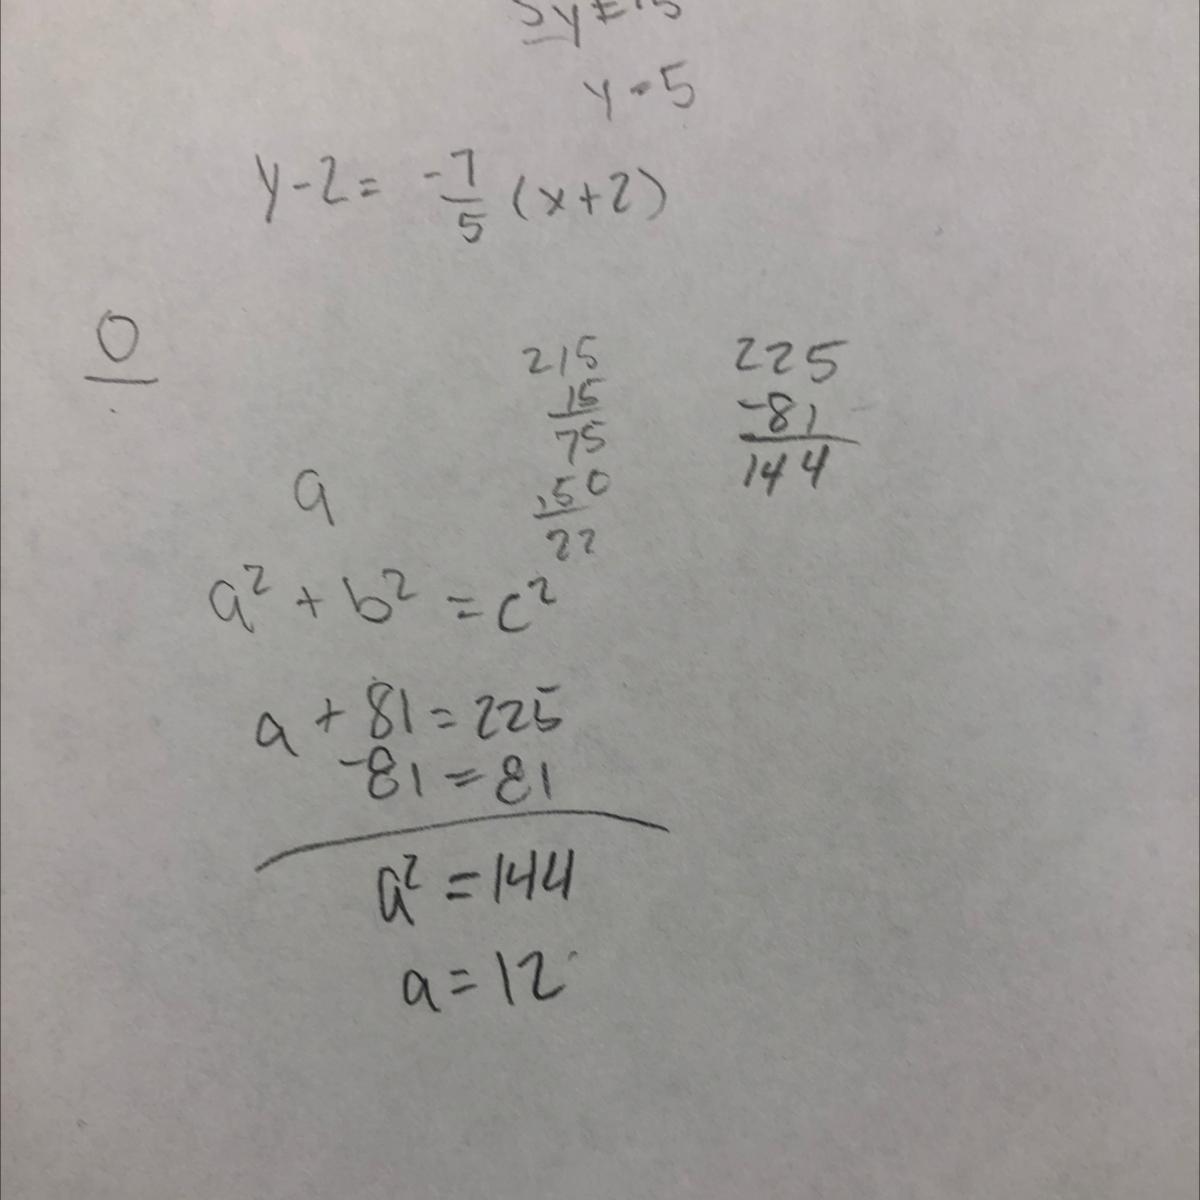 y = 5
y - 2 = -7/5 (x + 2)
0
215
15
75
150
22
225
-81
144
a
a² + b² = c²
a + 81 = 225
-81 = 81
a² = 144
a = 12